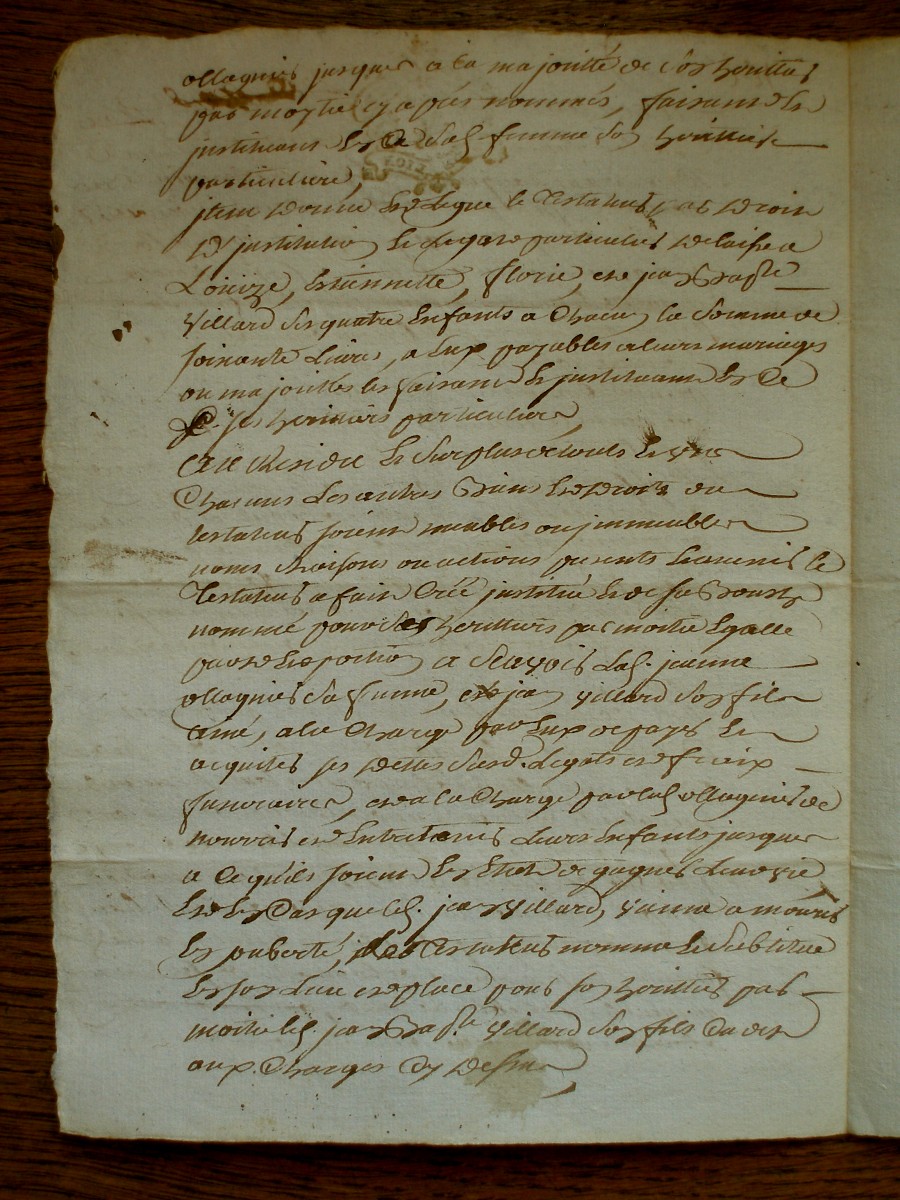 ollagnier jusques a la majoritté de son herittier
par moytie cy apres nommés, faisant et la
jnstituant en ce lad. femme son herittiere
particuliere,
jtem donne et legue le Testateur par droit
d'jnstitution et legat particulier delaisse a
Loüize, Estiennette, florie, et jean Bapte
Villard ses quatre Enfants a Chacun la Somme de
soixante Livres, a Eux payables a leurs mariages
ou majorittés les faisant et jnstituant En Ce
ses herittiers particuliers,
Et au Residu Et Surplus de touts Et uns
Chacuns Les autres Biens Et droits du
testateur soient meubles ou jmmeubles
noms Raisons ou actions presents Et avenir le
Testateur a fait Créé jnstitué Et de sa Bouche
nommé pour ses herittiers par moitié Egalle
part Et portion a Sçavoir lad. jeanne
ollagnier sa femme, et jean Villard son fils
ainé, a la Charge par Eux de payer Et
acquiter ses dettes susd. Legats et fraix
funeraires, et a la Charge par lad. ollagnier de
nourrir et Entretenir Leurs Enfants jusques
a Ce qu'ils soient En Etat de gagner Leur vie
Et En Cas que led. jean Villard, vienne a mourir
En puberté, le Testateur nomme Et Substitue
En son Lieu et place pour son herittier par
moitié led. jean Bapte. Villard son fils Cadet
aux Charges Cy dessus,